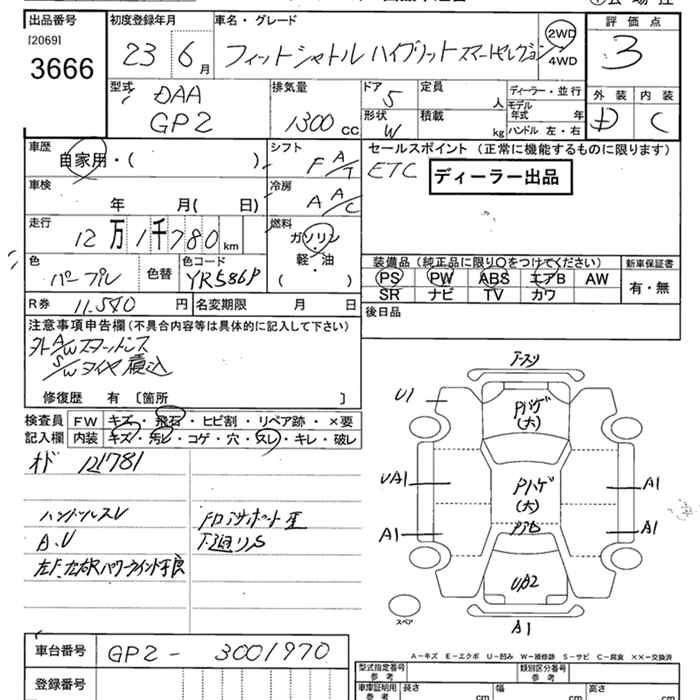 出品番号
[2069]
3666
初度登録年月
23 6月
車名・グレード
フィットシャトル ハイブリット スマートセレクション
2WD
4WD
評価点
3
型式
DAA
GP2
排気量
1300cc
ドア
5
形状
W
定員
人
積載
kg
ディーラー・並行
モデル
年式 年
ハンドル 左・右
外装 内装
D C
車歴
自家用・( )
シフト
F A/T
セールスポイント (正常に機能するものに限ります)
ETC
ディーラー出品
車検
年 月( 日)
冷房
A A/C
走行
12万1千780km
燃料
ガソリン
軽・油
( )
色
パープル
色替
色コード
YR586P
装備品 (純正品に限り○をつけてください)
PS PW ABS エアB AW
SR ナビ TV カワ
新車保証書
有・無
R券 11.540円
名変期限 月 日
後日品
注意事項申告欄(不具合内容等は具体的に記入して下さい)
外A/Wスタッドレス
S/Wタイヤ積込
修復歴 有 [箇所 ]
検査員
記入欄
FW キズ・飛石・ヒビ割・リペア跡・×要
内装 キズ・汚レ・コゲ・穴・スレ・キレ・破レ
オド 121781
ハンドルスレ
A.U
下廻りS
U1
Pハゲ
(大)
UA1
Pハゲ
(大)
A1
A1
A1
UA2
A1
スペア
車台番号
GP2-3001970
登録番号
A-キズ E-エクボ U-凹み W-補修跡 S-サビ C-腐食 ××-交換済
型式指定番号
参考
類別区分番号
参考
車庫証明用
参考
長さ
cm
幅
cm
高さ
cm